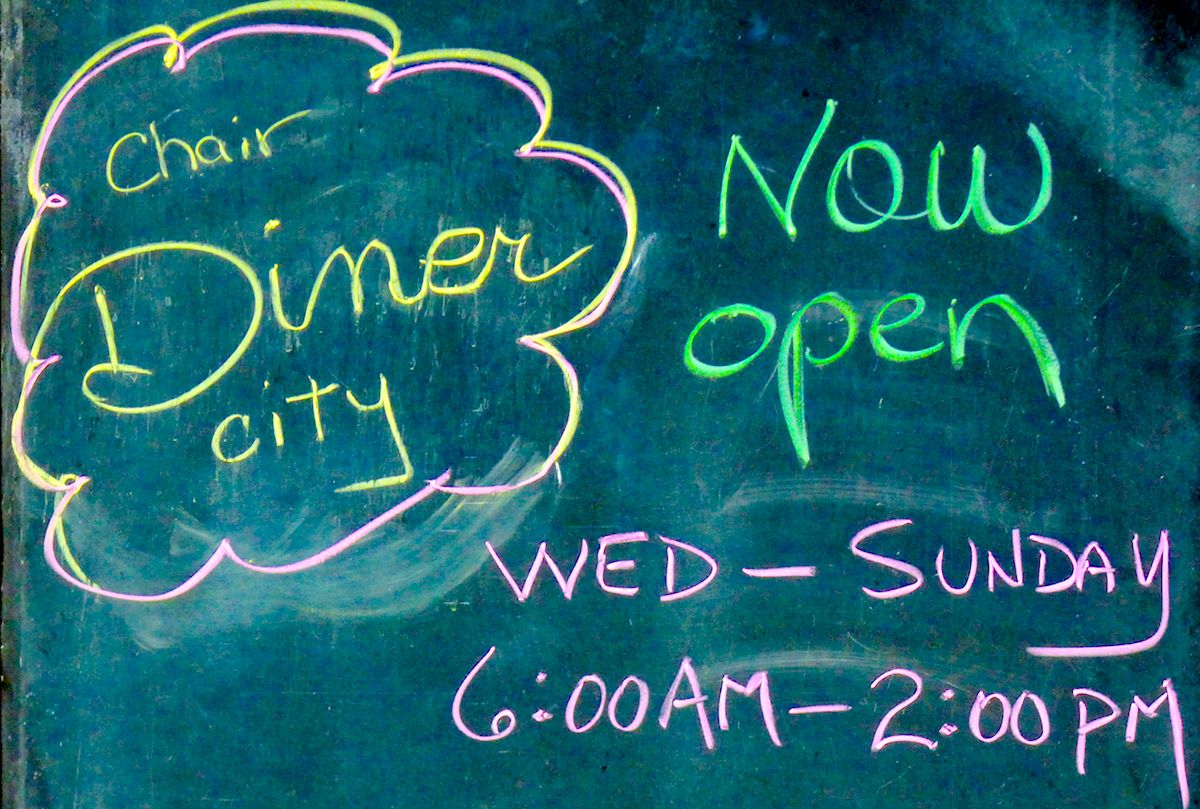 Chair
Diner
city
Now
open
WED - SUNDAY
6:00AM - 2:00PM